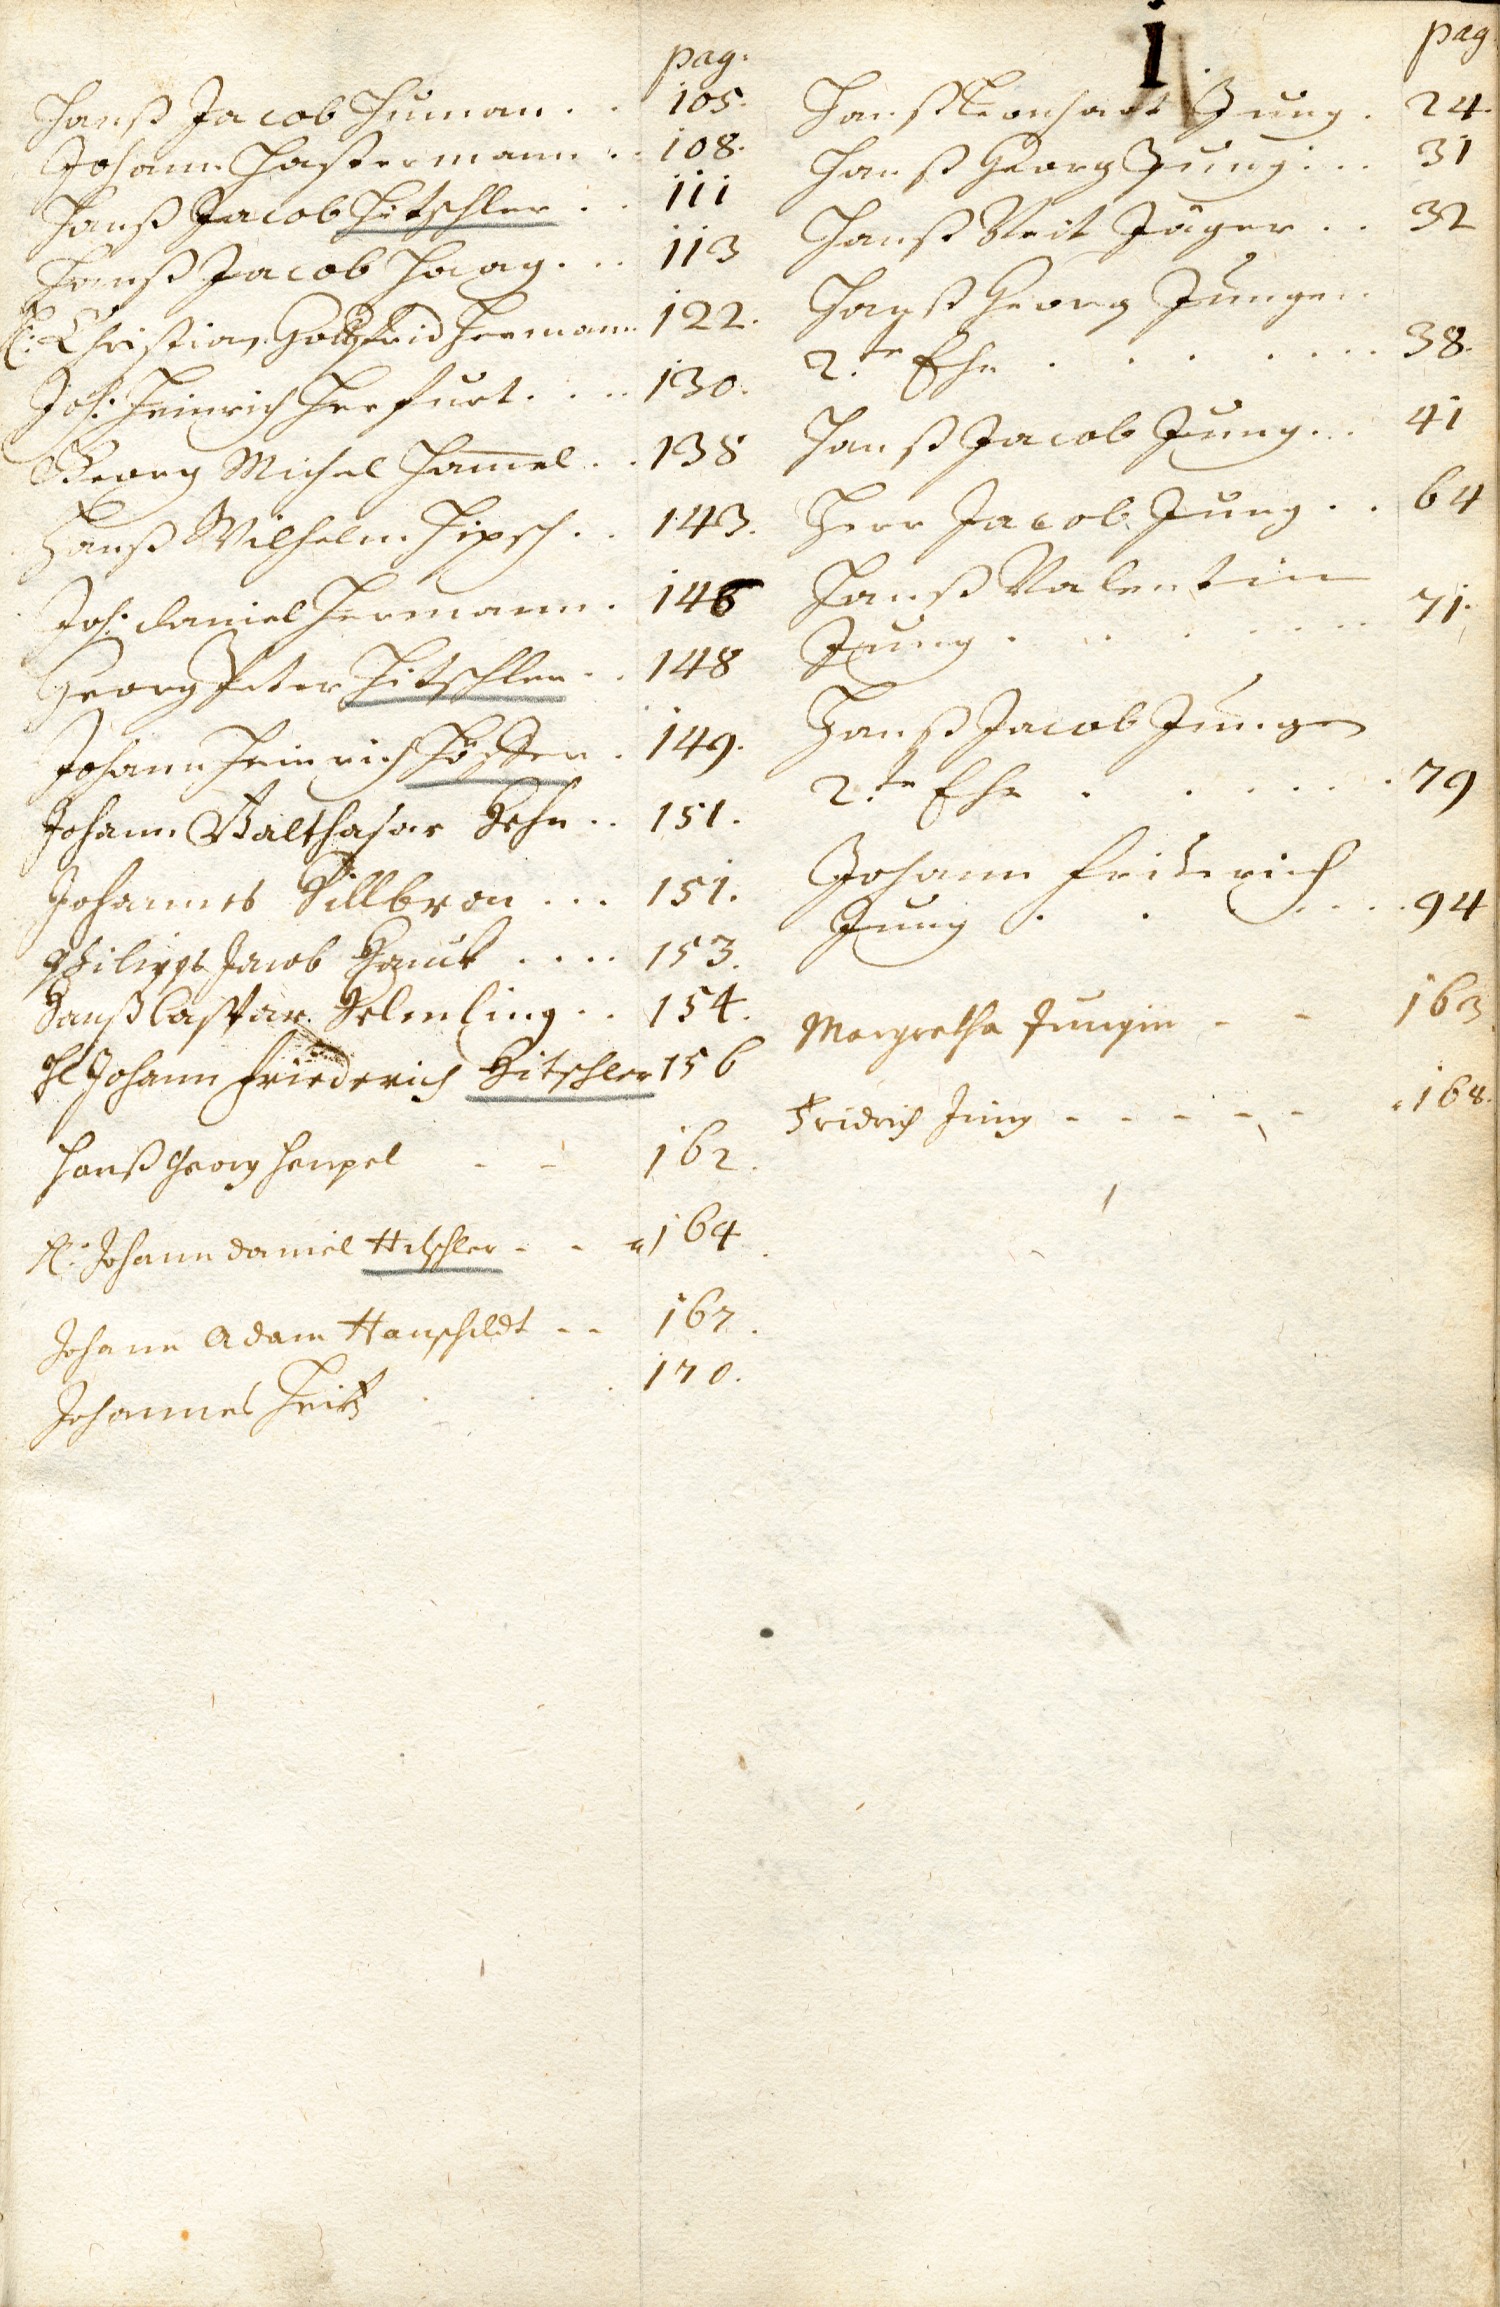 pag:
Hanß Jacob Human . . 105.
Johann Hastermann . . 108.
Hanß Jacob Hitschler . . 111
Hanß Jacob Haag . . . 113
H: Christian Gottfrid Hermann 122.
Joh: Heinrich Herfurt . . . . 130.
Georg Michel Ham̅el . . 138
Hanß Wilhelm Hipsch . . 143.
Joh: Daniel Hermann . 146
Georg Peter Hitschler . . 148
Johann Heinrich . 149.
Johann Balthasar Hehn . . 151.
Johannes Hillbron . . . 151.
Philipps Jacob Hauck . . . . 153.
Hanß Caspar . . 154.
H Johann Friederich Hitschler 156
Hanß Georg Hempel - - 162.
H: Johann Daniel Hitschler - - 164
Johann Adam Hanschildt - - 167.
Johannes Heitz . . . 170.
I
pag
Hanß Leonhart Jung . 24.
Hanß Georg Jung . . . 31
Hanß Veit Jäger . . 32
Hanß Georg Jungen
2.te Ehe . . . . . . . 38.
Hanß Jacob Jung . . . 41
Herr Jacob Jung . . 64
Hanß Valentin
Jung . . . . . . 71.
Hanß Jacob Jungen
2.te Ehe . . . . . . 79
Johann Friderich
Jung . . . . . . 94
Margretha Jungin - - 163.
Fridrich Jung - - - - - 168.